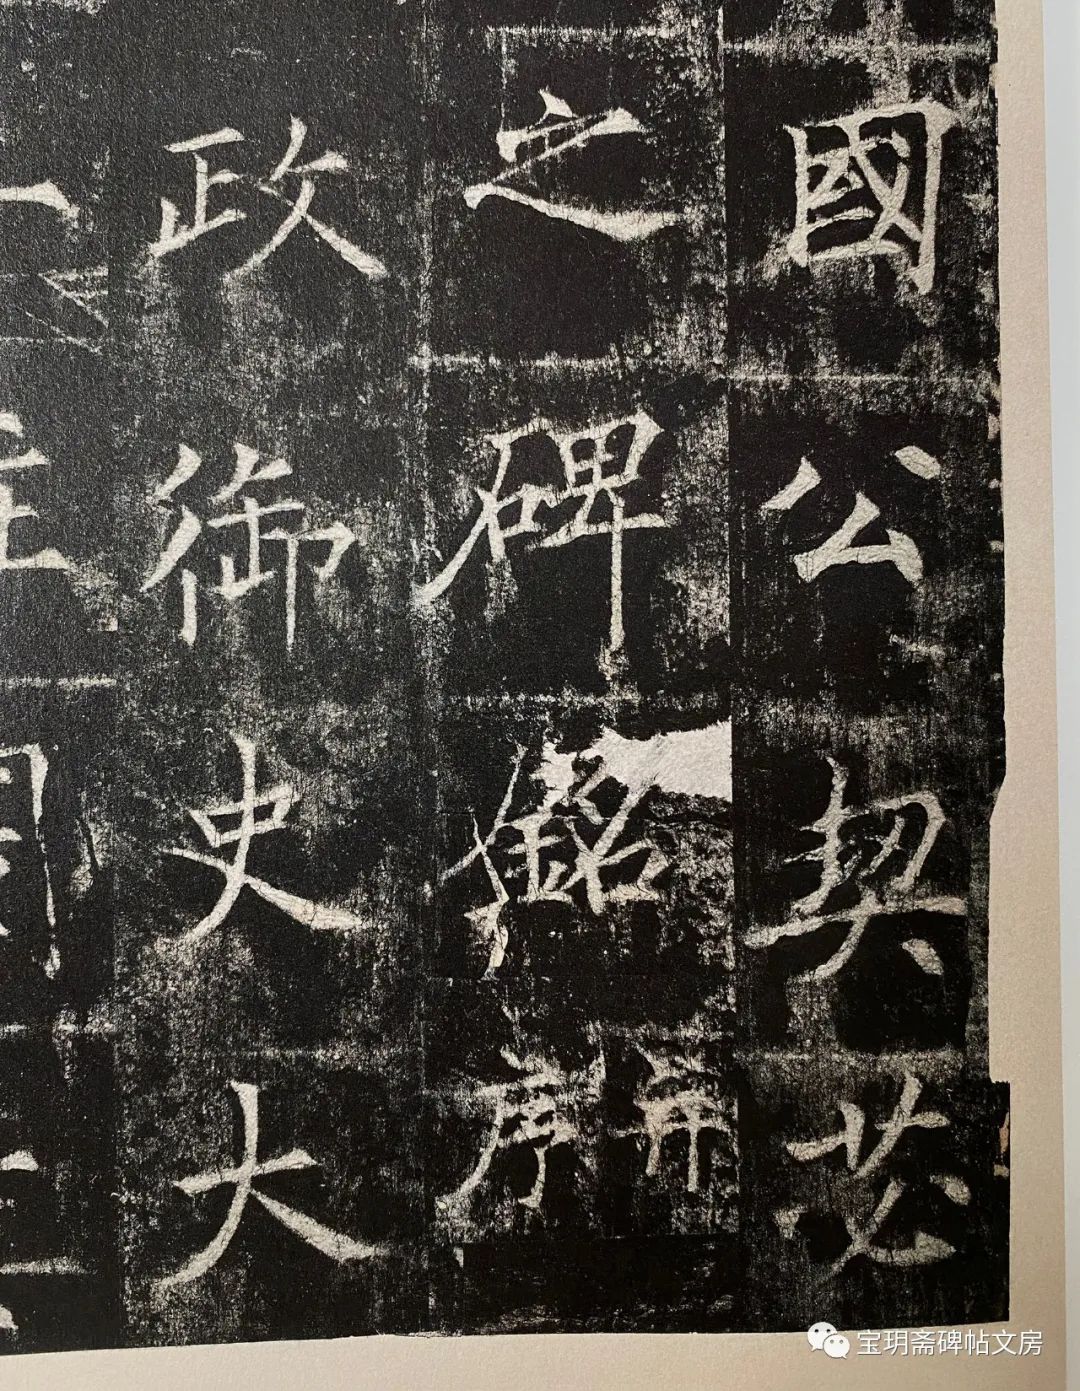 國公契苾
之碑銘并序
政御史大
宝玥斋碑帖文房